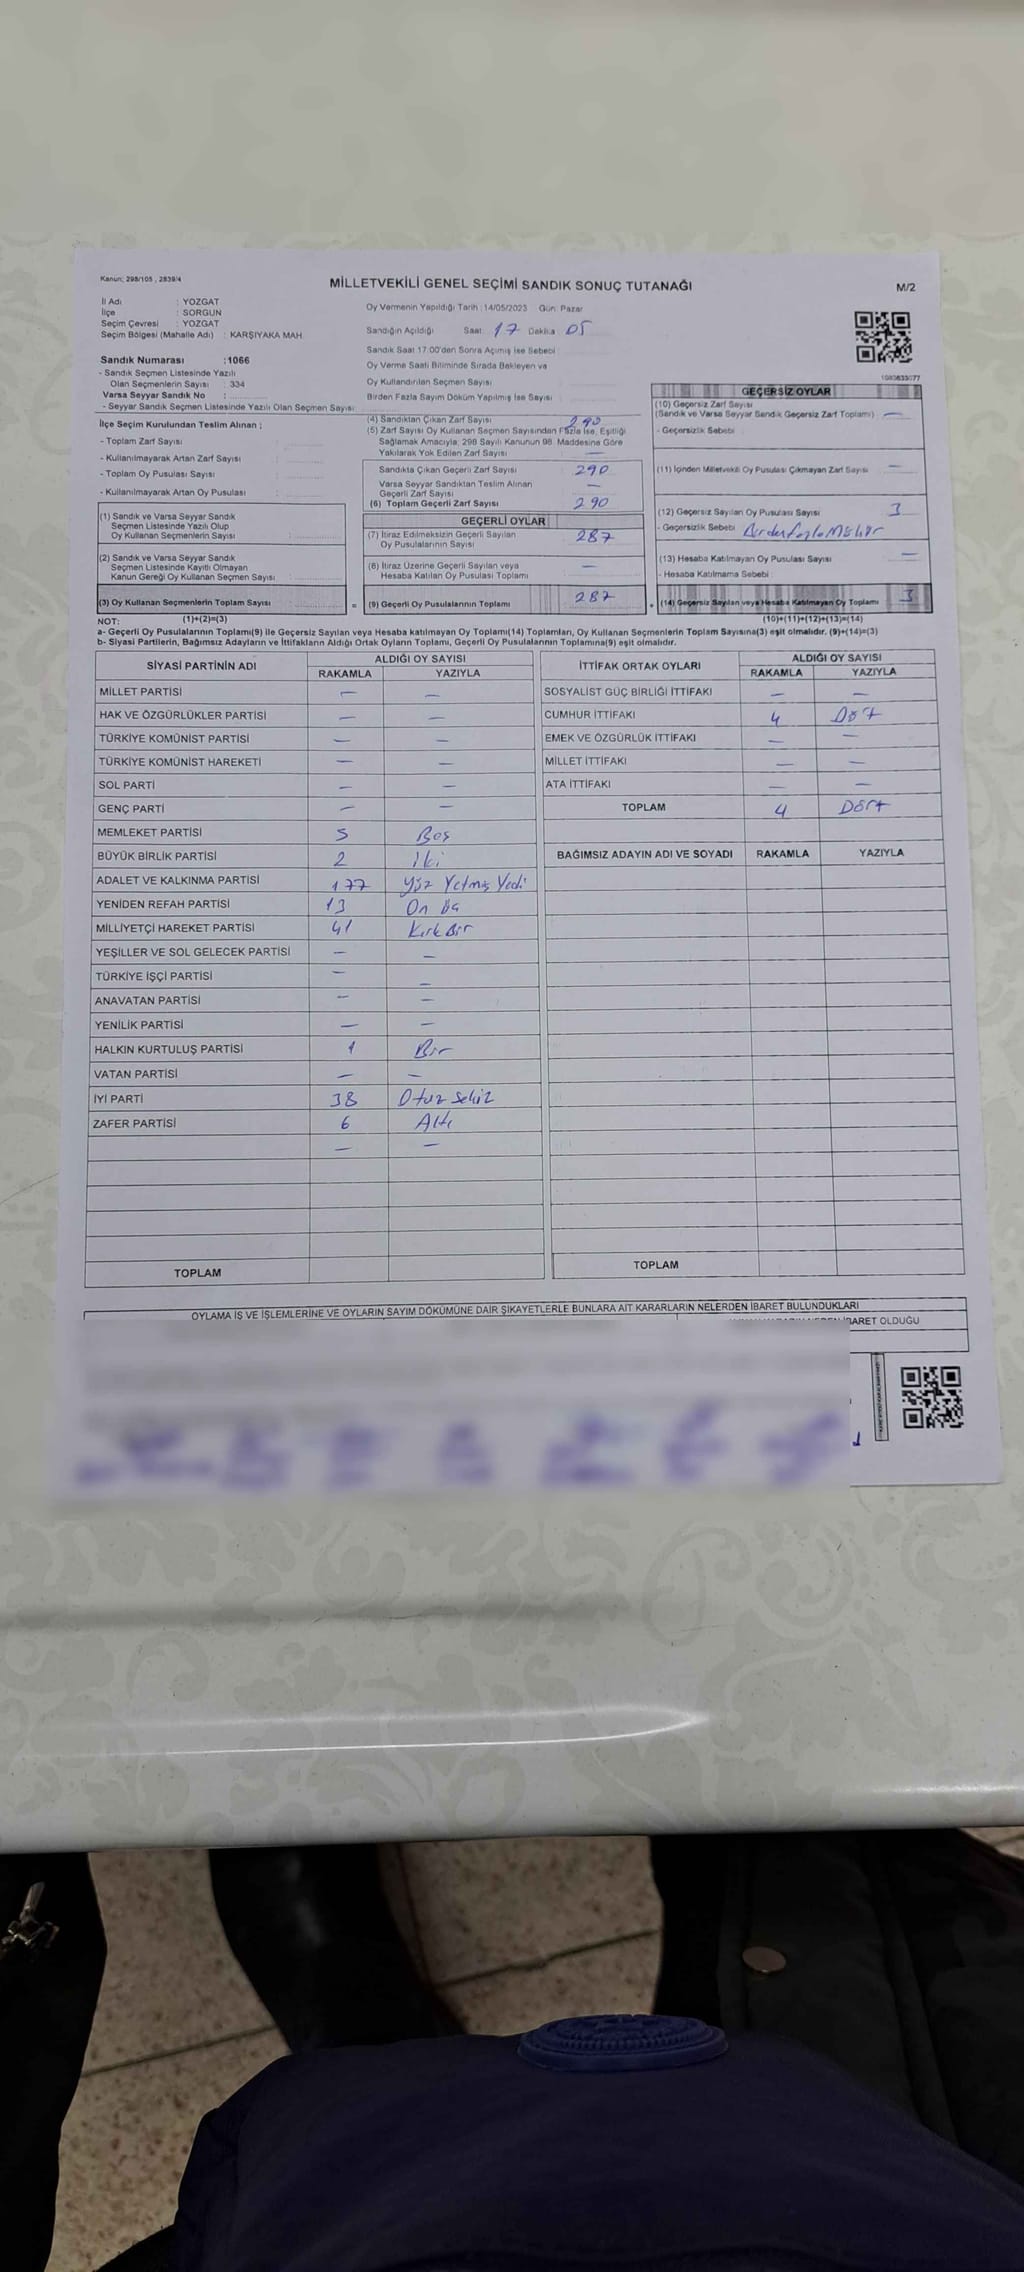 Kanun; 298/105 , 2839/4
MİLLETVEKİLİ GENEL SEÇİMİ SANDIK SONUÇ TUTANAĞI
M/2
İl Adı : YOZGAT
İlçe : SORGUN
Seçim Çevresi : YOZGAT
Seçim Bölgesi (Mahalle Adı) : KARŞIYAKA MAH.
Oy Vermenin Yapıldığı Tarih : 14/05/2023 Gün: Pazar
Sandığın Açıldığı Saat: 17 Dakika: 05
Sandık Saat 17:00'den Sonra Açımış İse Sebebi
Oy Verme Saati Bitiminde Sırada Bekleyen ve
Oy Kullandırılan Seçmen Sayısı
Birden Fazla Sayım Döküm Yapılmış İse Sayısı
Sandık Numarası :1066
- Sandık Seçmen Listesinde Yazılı
Olan Seçmenlerin Sayısı : 334
Varsa Seyyar Sandık No :
- Seyyar Sandık Seçmen Listesinde Yazılı Olan Seçmen Sayısı:
İlçe Seçim Kurulundan Teslim Alınan ;
- Toplam Zarf Sayısı :
- Kullanılmayarak Artan Zarf Sayısı :
- Toplam Oy Pusulası Sayısı :
- Kullanılmayarak Artan Oy Pusulası :
(1) Sandık ve Varsa Seyyar Sandık
Seçmen Listesinde Yazılı Olup
Oy Kullanan Seçmenlerin Sayısı :
(2) Sandık ve Varsa Seyyar Sandık
Seçmen Listesinde Kayıtlı Olmayan
Kanun Gereği Oy Kullanan Seçmen Sayısı :
(3) Oy Kullanan Seçmenlerin Toplam Sayısı
(1)+(2)=(3)
(4) Sandıktan Çıkan Zarf Sayısı 290
(5) Zarf Sayısı Oy Kullanan Seçmen Sayısından Fazla İse, Eşitliği
Sağlamak Amacıyla; 298 Sayılı Kanunun 98. Maddesine Göre
Yakılarak Yok Edilen Zarf Sayısı —
Sandıkta Çıkan Geçerli Zarf Sayısı 290
Varsa Seyyar Sandıktan Teslim Alınan
Geçerli Zarf Sayısı —
(6) Toplam Geçerli Zarf Sayısı 290
GEÇERLİ OYLAR
(7) İtiraz Edilmeksizin Geçerli Sayılan
Oy Pusulalarının Sayısı 287
(8) İtiraz Üzerine Geçerli Sayılan veya
Hesaba Katılan Oy Pusulası Toplamı —
= (9) Geçerli Oy Pusulalarının Toplamı 287
1083633077
GEÇERSİZ OYLAR
(10) Geçersiz Zarf Sayısı
(Sandık ve Varsa Seyyar Sandık Geçersiz Zarf Toplamı) —
- Geçersizlik Sebebi :
(11) İçinden Milletvekili Oy Pusulası Çıkmayan Zarf Sayısı —
(12) Geçersiz Sayılan Oy Pusulası Sayısı 3
- Geçersizlik Sebebi Birden fazla Mühür
(13) Hesaba Katılmayan Oy Pusulası Sayısı —
- Hesaba Katılmama Sebebi :
+ (14) Geçersiz Sayılan veya Hesaba Katılmayan Oy Toplamı 3
(10)+(11)+(12)+(13)=(14)
NOT:
a- Geçerli Oy Pusulalarının Toplamı(9) ile Geçersiz Sayılan veya Hesaba katılmayan Oy Toplamı(14) Toplamları, Oy Kullanan Seçmenlerin Toplam Sayısına(3) eşit olmalıdır. (9)+(14)=(3)
b- Siyasi Partilerin, Bağımsız Adayların ve İttifakların Aldığı Ortak Oyların Toplamı, Geçerli Oy Pusulalarının Toplamına(9) eşit olmalıdır.
SİYASİ PARTİNİN ADI ALDIĞI OY SAYISI
RAKAMLA YAZIYLA
MİLLET PARTİSİ — —
HAK VE ÖZGÜRLÜKLER PARTİSİ — —
TÜRKİYE KOMÜNİST PARTİSİ — —
TÜRKİYE KOMÜNİST HAREKETİ — —
SOL PARTİ — —
GENÇ PARTİ — —
MEMLEKET PARTİSİ 5 Beş
BÜYÜK BİRLİK PARTİSİ 2 İki
ADALET VE KALKINMA PARTİSİ 177 Yüz Yetmiş Yedi
YENİDEN REFAH PARTİSİ 13 On üç
MİLLİYETÇİ HAREKET PARTİSİ 41 Kırk Bir
YEŞİLLER VE SOL GELECEK PARTİSİ — —
TÜRKİYE İŞÇİ PARTİSİ — —
ANAVATAN PARTİSİ — —
YENİLİK PARTİSİ — —
HALKIN KURTULUŞ PARTİSİ 1 Bir
VATAN PARTİSİ — —
İYİ PARTİ 38 Otuz Sekiz
ZAFER PARTİSİ 6 Altı
— —
TOPLAM
İTTİFAK ORTAK OYLARI ALDIĞI OY SAYISI
RAKAMLA YAZIYLA
SOSYALİST GÜÇ BİRLİĞİ İTTİFAKI — —
CUMHUR İTTİFAKI 4 Dört
EMEK VE ÖZGÜRLÜK İTTİFAKI — —
MİLLET İTTİFAKI — —
ATA İTTİFAKI — —
TOPLAM 4 Dört
BAĞIMSIZ ADAYIN ADI VE SOYADI RAKAMLA YAZIYLA
TOPLAM
OYLAMA İŞ VE İŞLEMLERİNE VE OYLARIN SAYIM DÖKÜMÜNE DAİR ŞİKAYETLERLE BUNLARA AİT KARARLARIN NELERDEN İBARET BULUNDUKLARI
İBARET OLDUĞU